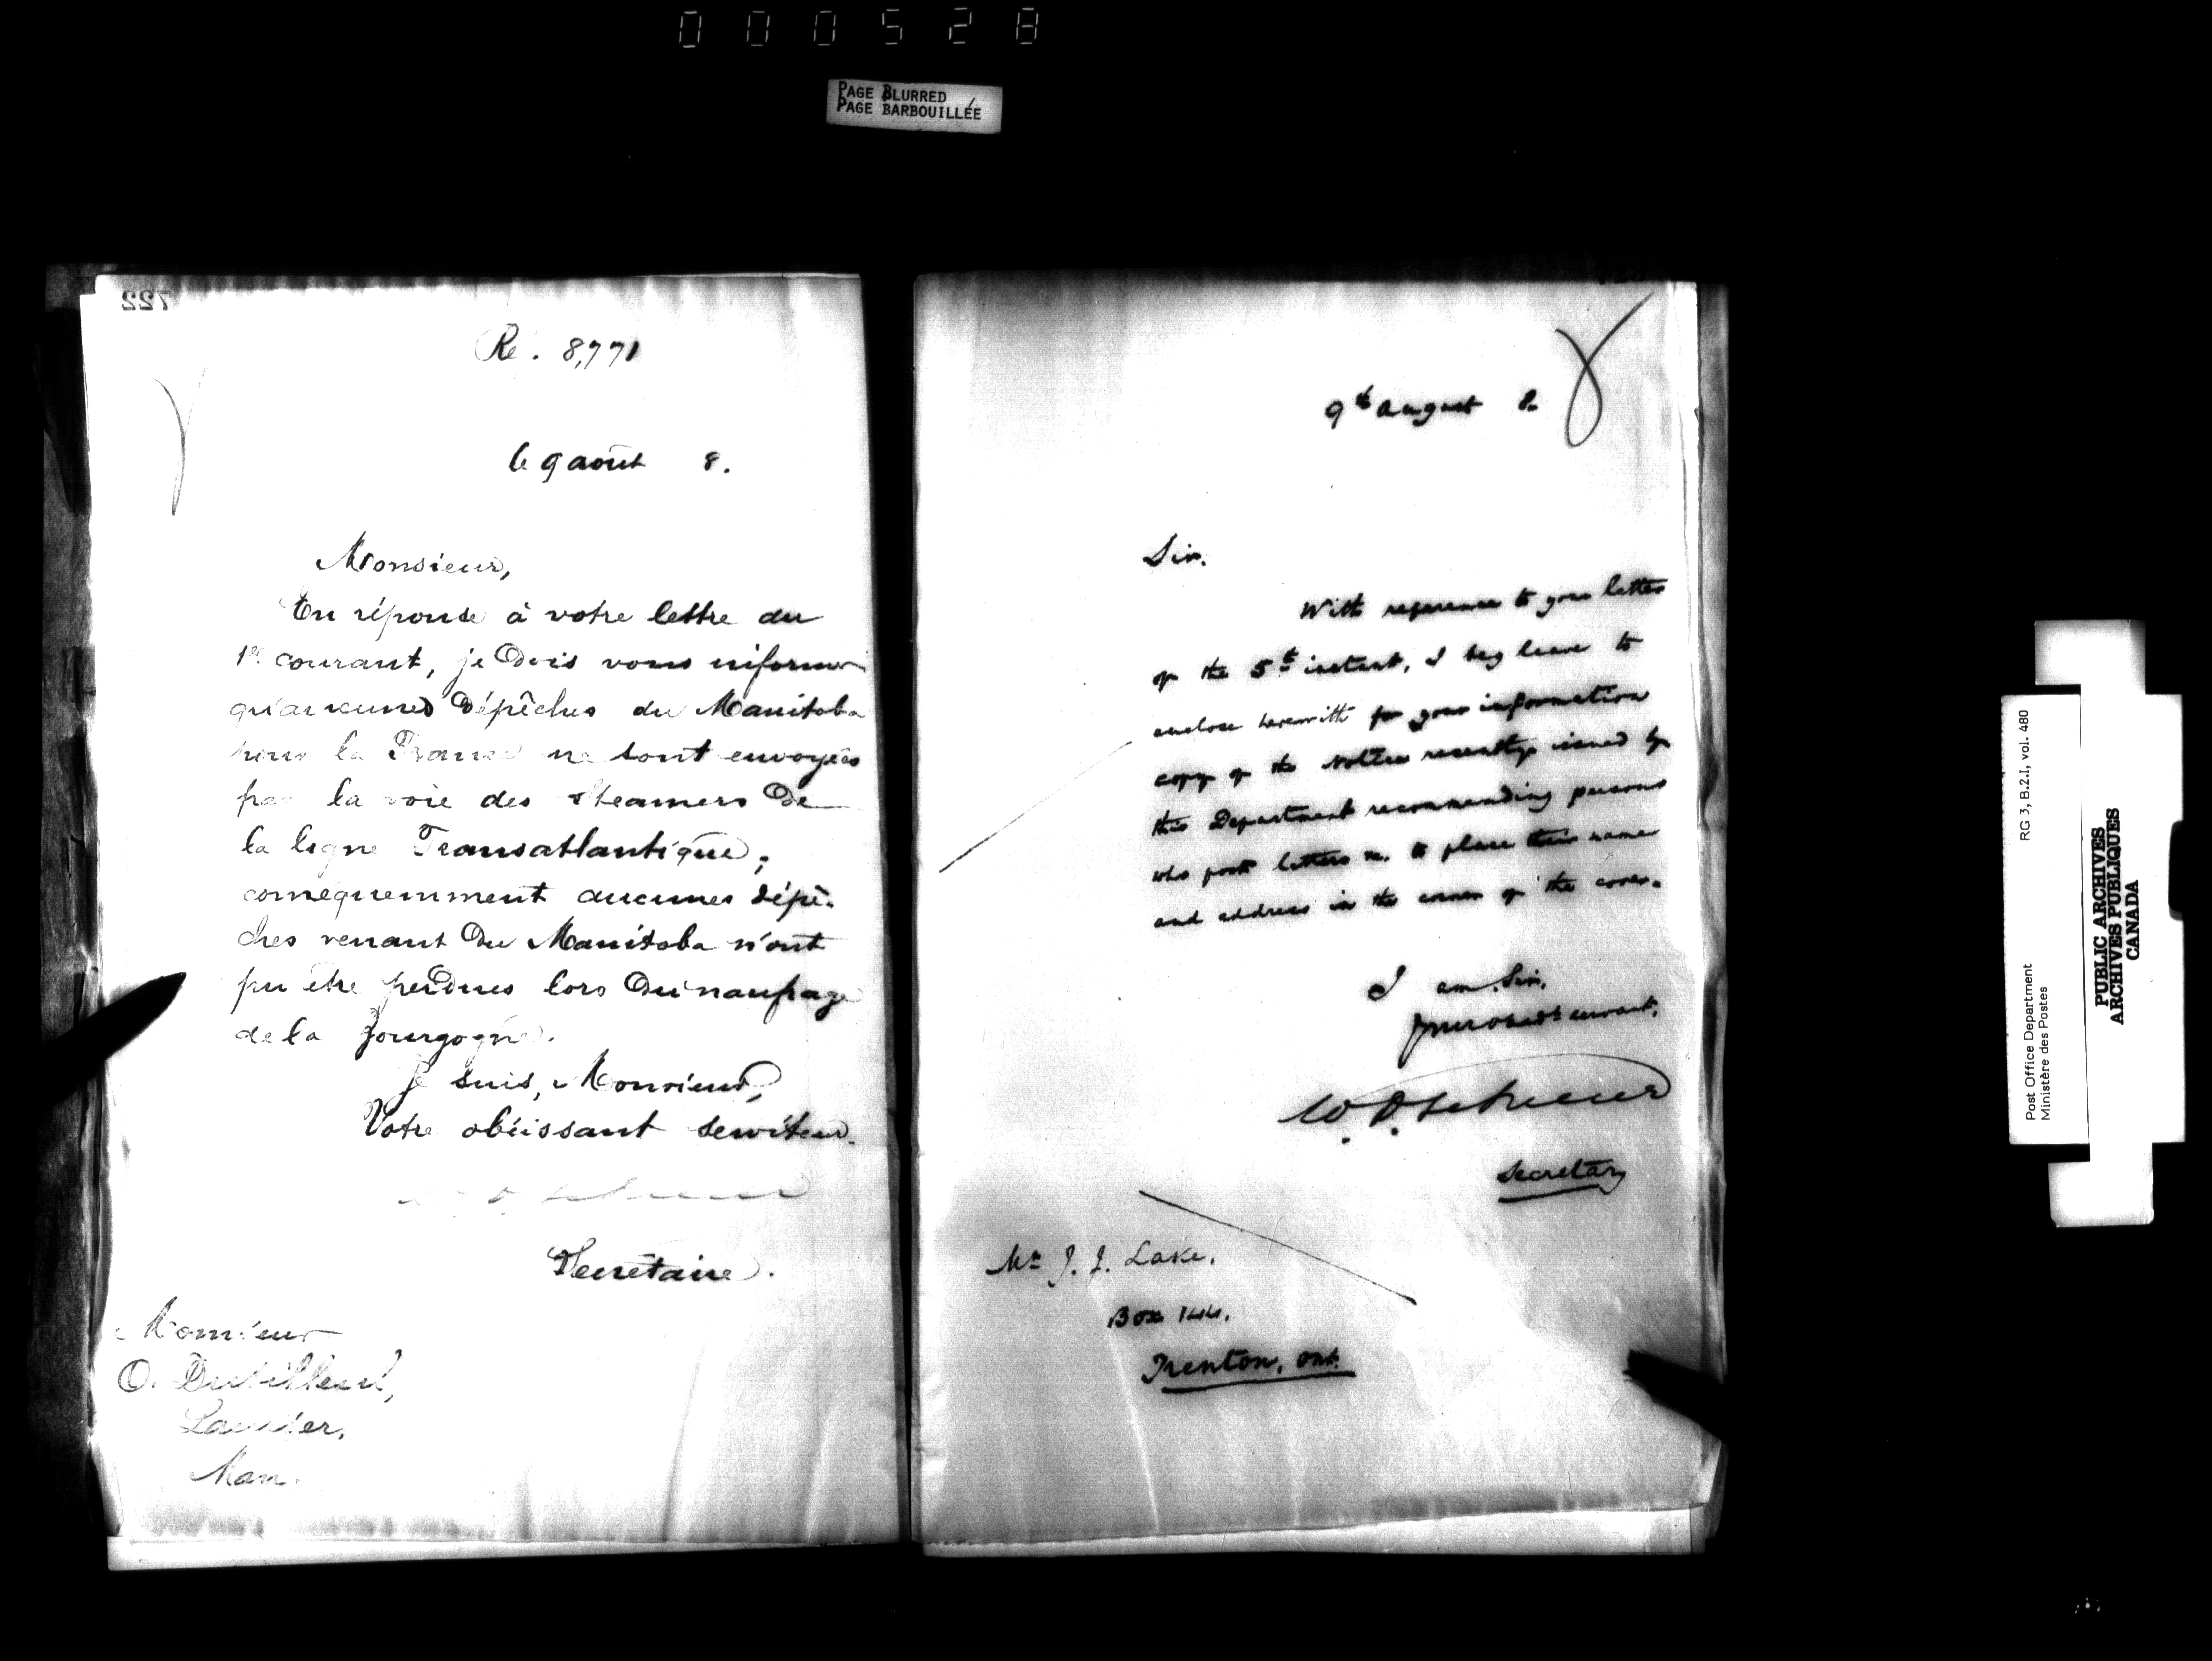 000528
PAGE BLURRED
PAGE BARBOUILLÉE
722
Re. 8,771
le 9 août 8.
Monsieur,
En réponse à votre lettre du
1er courant, je dois vous informer
qu'aucunes dépêches du Manitoba
pour la France ne sont envoyées
par la voie des steamers de
la ligne Transatlantique;
conséquemment aucunes dépê-
ches venant du Manitoba n'ont
pu être perdues lors du naufrage
de la Bourgogne.
Je suis, Monsieur,
Votre obéissant serviteur.
Secrétaire.
Monsieur
O.
Lauder,
Man.
9th August 8
Sir.
With reference to your letter
of the 5th instant, I beg leave to
enclose herewith for your information
copy of the Notice recently issued by
this Department recommending persons
who post letters &c. to place their name
and address in the corner of the cover.
I am, Sir,
Your obedt servant,
Secretary
Mr J. J. Lake,
Box 144,
Trenton, Ont.
Post Office Department
Ministère des Postes
RG 3, B.2.I, vol. 480
PUBLIC ARCHIVES
ARCHIVES PUBLIQUES
CANADA